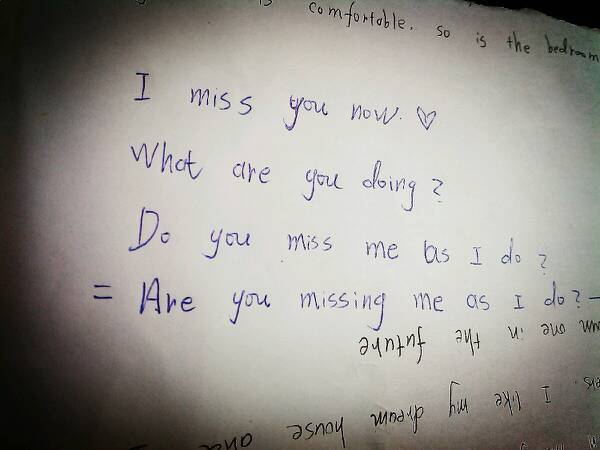 is comfortable. so is the bedroom
I miss you now. ♡
What are you doing?
Do you miss me as I do?
= Are you missing me as I do? –
own one in the future
I like my dream house